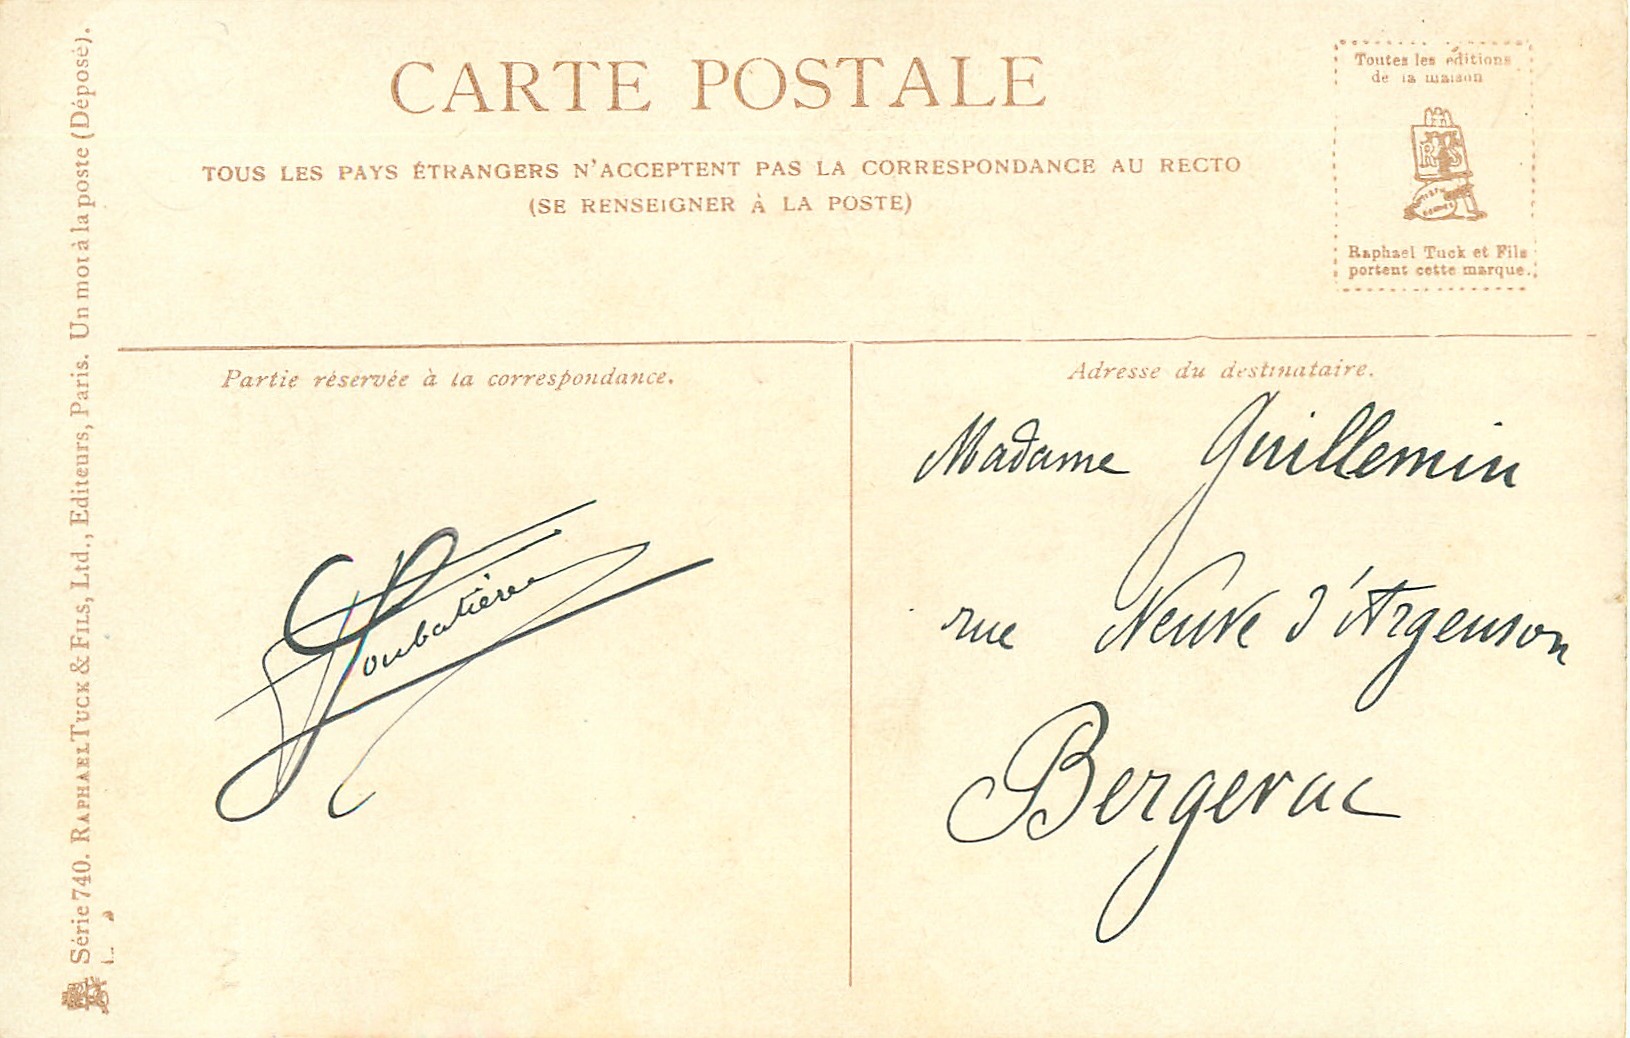 CARTE POSTALE
TOUS LES PAYS ÉTRANGERS N'ACCEPTENT PAS LA CORRESPONDANCE AU RECTO
(SE RENSEIGNER À LA POSTE)
Toutes les éditions
de la maison
Raphael Tuck et Fils
portent cette marque.
Série 740. RAPHAEL TUCK & FILS, Ltd., Editeurs, Paris. Un mot à la poste (Déposé).
Partie réservée à la correspondance.
Adresse du destinataire.
Madame Guillemin
rue Neuve d'Argenson
Bergerac